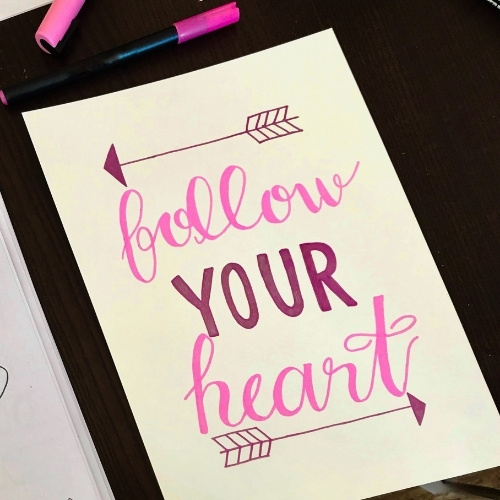 follow
YOUR
heart